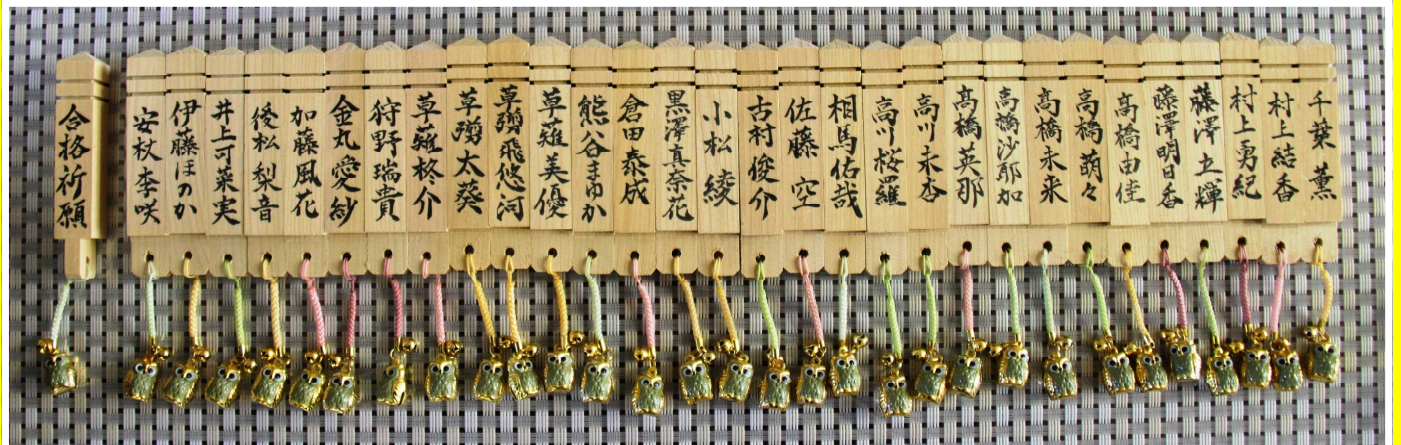 合格祈願
安杖李咲
伊藤ほのか
井上可菜実
後松梨音
加藤風花
金丸愛紗
狩野瑞貴
草薙柊介
草彅太葵
草彅飛悠河
草薙美優
熊谷まゆか
倉田泰成
黒澤真奈花
小松綾
古村俊介
佐藤空
相馬佑哉
高川桜羅
高川未杏
髙橋英那
高橋沙耶加
高橋未来
高橋萌々
高橋由佳
藤澤明日香
藤澤立輝
村上勇紀
村上結香
千葉薫